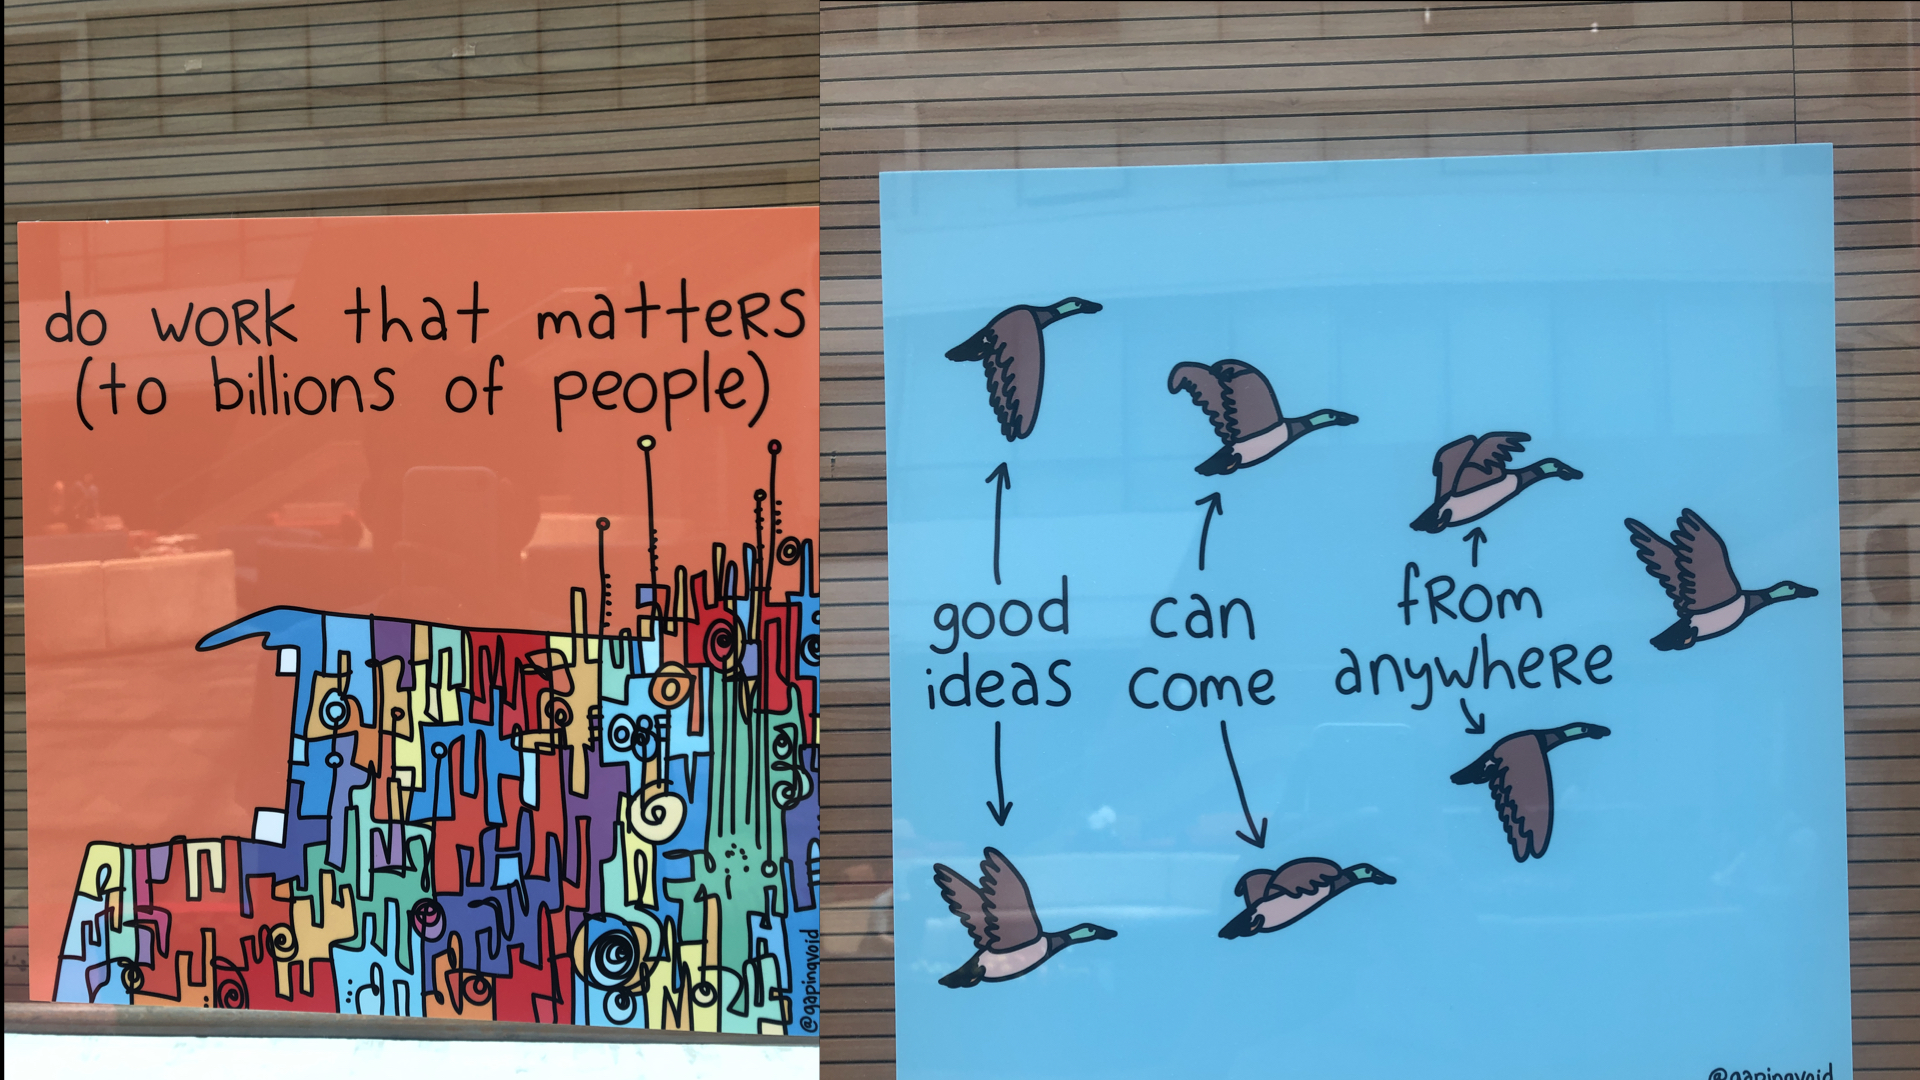 do WORK that matteRS
(to billions of people)
@gapingvoid
good
ideas
can
come
fRom
anywheRe
@gapingvoid